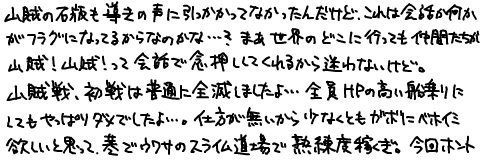 山賊の石版も導きの声に引っかかってなかったんだけど、これは会話か何か
がフラグになってるからなのかな…？まぁ世界のどこに行っても仲間たちが
山賊！山賊！って会話で念押ししてくれるから迷わないけど。
山賊戦、初戦は普通に全滅しましたよ…全員HPの高い船乗りに
してもやっぱりダメでしたよ…。仕方が無いから少なくともガボにベホイミ
欲しいと思って、巷でウワサのスライム道場で熟練度稼ぎ。今回ホント